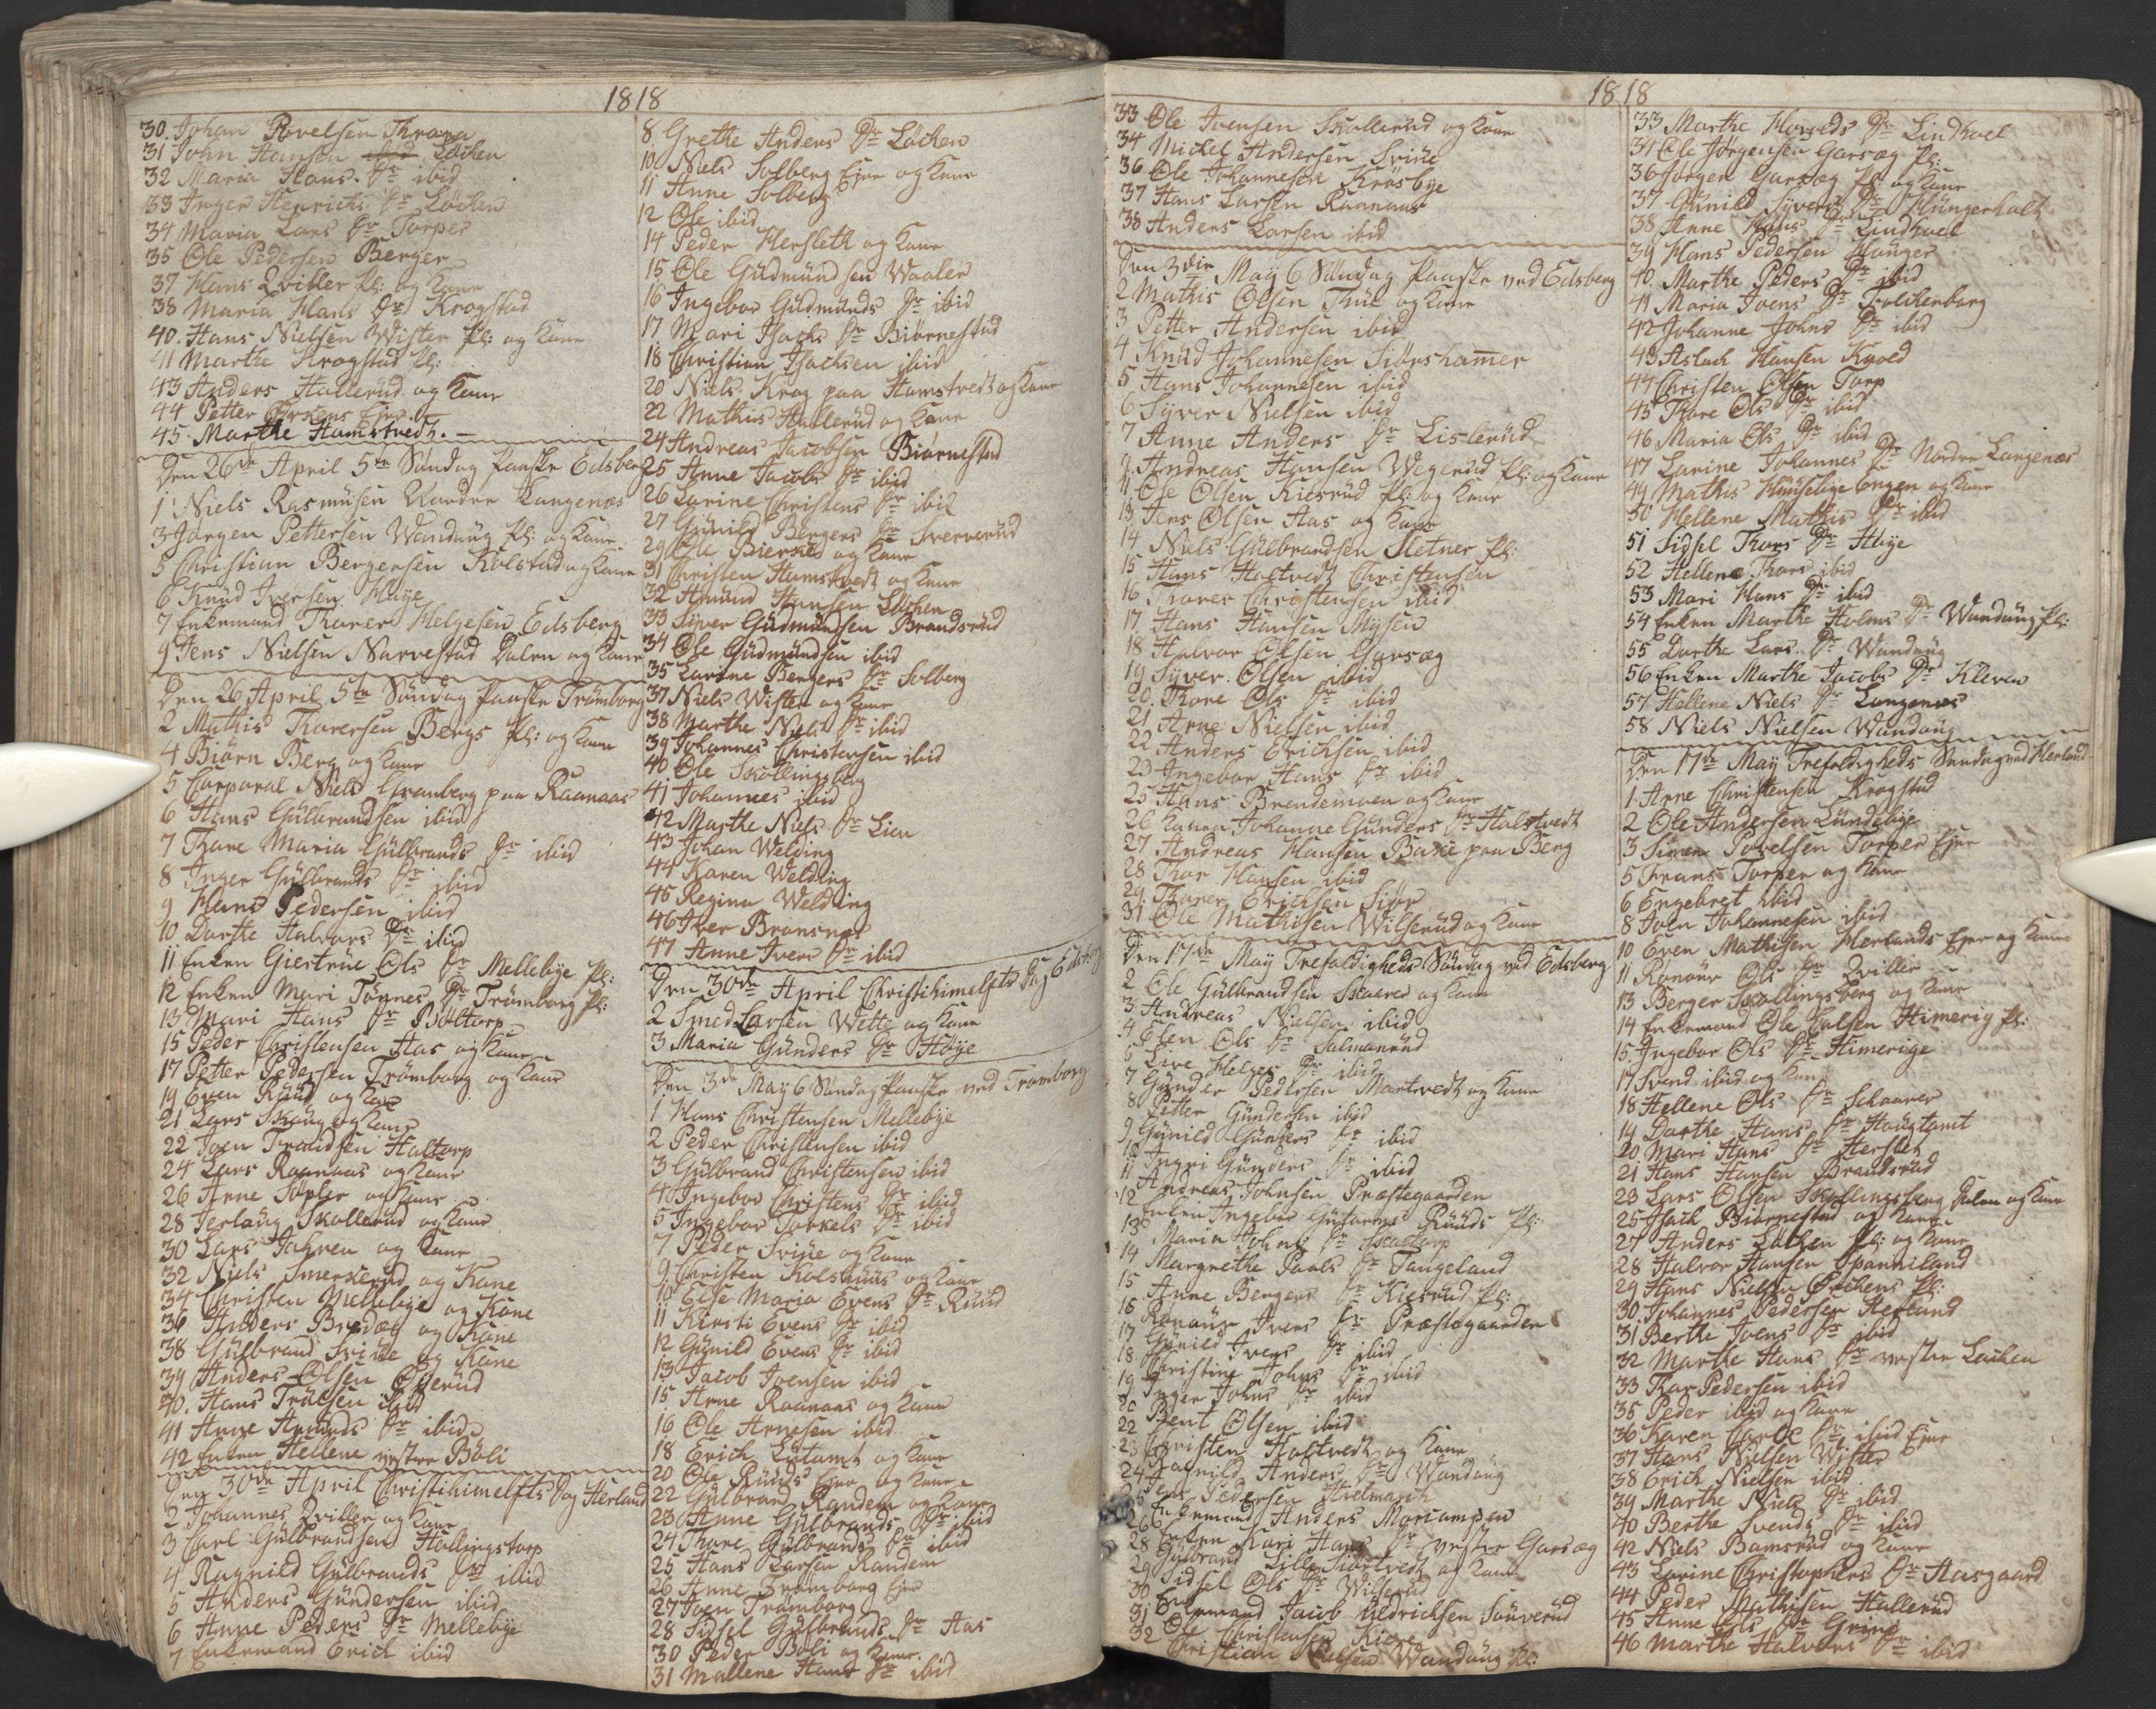 1818
30. Johan Povelsen Thrana
31 John Hansen ibid Løcken
32 Maria Hans Dr ibid
33 Inger Henrichs Dr Løcken
34 Maria Lars Dr Torper
35 Ole Pedersen Berger
37 Hans Qviller Pl: og Kone
38 Maria Hans Dr Krogstad
40. Hans Nielsen Wister Pl: og Kone
41 Marthe Krogstad Pl:
43 Anders Hallerud og Kone
44 Petter Ørkens Ejer
45. Marthe Hamstvedt. –
Den 26de April 5te Søndag Paaske Edsberg
1 Niels Rasmusen Nordre Langenæs
3 Jørgen Pettersen Wandung Pl: og Kone
5 Christian Bergersen Kolstad og Kone
6 Knud Iversen Høye
7 Enkemand Thorer Helgesen Edsberg
9 Jens Nielsen Narvestad Dalen og Kone
Den 26 April 5te Søndag Paaske Trømborg
2 Mathis Thoresen Bergs Pl: og Kone
4 Biørn Berg og Kone
5 Corporal Niels Granberg paa Raanaas
6 Hans Gulbrandsen ibid
7 Thore Maria Gulbrands Dr ibid
8 Inger Gulbrands Dr ibid
9 Hans Pedersen ibid
10 Dorthe Halvors Dr ibid
11 Enken Giertrue Ols Dr Mellebye Pl:
12 Enken Mari Tønnes Dr Trømborg Pl:
13 Mari Hans Dr Bøltorp
15 Peder Christensen Aas og Kone
17 Petter Pedersen Trømborg og Kone
19 Even Ruud og Kone
21 Lars Skoug og Kone
22 Joen Trondsen Haltorp
24 Lars Raanaas og Kone
26 Arne Tøpler og Kone
28 Terlaug Skollerud og Kone
30 Lars Jahren og Kone
32 Niels Smerkerud og Kone
34 Christen Mellebye og Kone
36 Anders Brydæg og Kone
38 Gulbrand Sviue og Kone
39 Anders Olsen Ølerud
40. Hans Trulsen ibid
41 Anne Amunds Dr ibid
42 Enken Hellene vestre Bøli
Den 30de April Christihimelfts Dag Herland
2 Johannes Qviller og Kone
3 Carl Gulbrandsen Hallingstorp
4 Ragnild Gulbrands Dr ibid
5 Anders Gundersen ibid
6 Anne Peders Dr Mellebye
7 Enkemand Erich ibid
8 Grethe Anders Dr Løcken
10 Niels Solberg Ejer og Kone
11 Anne Solberg
12 Ole ibid
14 Peder Hersleth og Kone
15 Ole Gudmundsen Waaler
16 Ingebor Gudmunds Dr ibid
17 Mari Isachs Dr Biørnestad
18 Christian Isachsen ibid
20 Niels Krog paa Hamstvedt og Kone
22 Mathis Hallerud og Kone
24 Andreas Jacobsen Biørnestad
25 Anne Jacobs Dr ibid
26 Larine Christens Dr ibid
27 Gunild Bergers Dr Sververud
29 Ole Bierked og Kone
31 Christen Hamstvedt og Kone
32 Amund Hansen Løcken
33 Syver Gudmundsen Brandsrud
34 Ole Gudmundsen ibid
35 Larine Bergers Dr Solberg
37 Niels Wister og Kone
38 Marthe Niels Dr ibid
39 Johannes Christensen ibid
40 Ole Skollingsberg
41 Johannes ibid
42 Marthe Niels Dr Lien
43 Johan Welding
44 Karen Welding
45 Regina Welding
46 Iver Bransnes
47 Anne Ivers Dr ibid
Den 30de April Christihimelfts Dag Edsberg
2 Smed Larsen Wette og Kone
3 Maria Gunders Dr Høye
Den 3de May 6 Søndag Paaske ved Tromborg
1 Hans Christensen Mellebye
2 Peder Christensen ibid
3 Gulbrand Christensen ibid
4 Ingebor Christens Dr ibid
5 Ingebor Torkels Dr ibid
7 Peder Sviue og Kone
9. Christen Kolshuus og Kone
10 Else Maria Evens Dr Ruud
11 Kirsti Evens Dr ibid
12 Gunild Evens Dr ibid
13 Jacob Joensen ibid
15. Arne Raanaas og Kone
16 Ole Arnesen ibid
18 Erich Lutamt og Kone
20 Ole Ruuds Ejer og Kone
22 Gulbrand Randem og Kone
23 Anne Gulbrands Dr ibid
24 Thore Gulbrands Dr ibid
25 Hans Larsen Randem
26 Anne Trømborg Ejer
27 Joen Trømborg
28 Sidsel Gulbrands Dr Aas
30 Peder Bøli og Kone.
31 Mallene Hans Dr ibid
1818
33 Ole Joensen Skallerud og Kone
34 Michel Andersen Sviue
36 Ole Johannesen Krosbye
37 Hans Larsen Raanaas
38 Anders Larsen ibid
Den 3die May 6 Søndag Paaske ved Edsberg
2 Mathis Olsen Thue og Kone
3 Petter Andersen ibid
4 Knud Johannesen Siørshamer
5 Hans Johannesen ibid
6 Syver Nielsen ibid
7 Anne Anders Dr Lislerud
9. Andreas Hansen Wegerud Pl: og Kone
11 Ole Olsen Kiesrud Pl: og Kone
13 Jens Olsen Aas og Kone
14 Niels Gulbrandsen Sletner Pl:
15 Hans Holtvedt Christensen
16 Thorer Christensen ibid
17. Hans Hansen Mysen
18 Halvor Olsen Garsæg
19 Syver Olsen ibid
20. Thore Ols Dr ibid
21 Arne Nielsen ibid
22 Anders Erichsen ibid
23 Ingebor Hans Dr ibid
25 Hans Brendemoen og Kone
26 Konen Johanne Gunders Dr Holstvedt
27 Andreas Hansen Baxe paa Berg
28 Thor Hansen ibid
29. Thorer Erichsen Siør
31 Ole Mathisen Wilserud og Kone
Den 17de May Trefoldigheds Søndag ved Edsberg
2 Ole Gulbrandsen Skaarer og Kone
3 Andreas Nielsen ibid
4 Elen Ols Dr Salmanrud
5 Live Helges Dr ibid
7 Gunder Pedersen Martvedt og Kone
8 Petter Gundersen ibid
9 Gunild Gunders Dr ibid
10 Ingri Gunders Dr ibid
11 Andreas Johnsen Præstegaarden
12 Enken Ingebor Gutorms Ruuds Pl:
13 Maria Johns Dr
14 Margrethe Paals Dr Tangeland
15 Anne Bergers Dr Kiesrud Pl:
16 Ronaug Ivers Dr Præstegaarden
17 Gunild Ivers Dr ibid
18 Christine Johns Dr ibid
19 Inger Johns Dr ibid
20 Bent Olsen ibid
22 Christen Holtvedt og Kone
23 Ragnild Anders Dr Wandung
24 Jens Pedersen
25 Enkemand Anders Moriampen
26 Enken Kari Hans Dr vestre Garsæg
28 Gulbrand Lille og Kone
29 Sidsel Ols Dr Wilserud
30 Enkemand Jacob Uldrichsen Sauverud
31 Ole Christensen Kiere
32 Christian Wandung Pl:
1818
33 Marthe Hovelds Dr Lindhoel
34 Ole Jørgensen Garsæg Pl:
36 Jørgen Garsæg Pl: og Kone
37 Gunild Syvers Dr Hungerholt
38 Anne Hans Dr Lindhoel
39 Hans Pedersen Hunger
40. Marthe Peders Dr ibid
41 Maria Joens Dr Trolckerborg
42 Johanne Johns Dr ibid
43 Aslach Hansen Knoed
44 Christen Olsen Torp
45 Thore Ols Dr ibid
46 Maria Ols Dr ibid
47 Larine Johannes Dr Nordre Langenæs
49 Mathis Huuseligeengen og Kone
50 Hellene Mathis Dr ibid
51 Sidsel Thors Dr Høye
52 Hellene Thors ibid
53 Mari Hans Dr ibid
54 Enken Marthe Holms Dr Wandung Pl:
55 Dorthe Lars Dr Wandung
56 Enken Marthe Jacobs Dr Kleven
57 Hellene Niels Dr Langenæs
58 Niels Nielsen Wandung
Den 17de May Trefoldigheds Søndag ved Herland
1. Arne Christensen Krogstad
2 Ole Andersen Lundebye
3 Simen Povelsen Torper Ejer
5 Frans Torper og Kone
6 Engebret ibid
8 Joen Johannesen ibid
10 Even Mathisen Herlands Ejer og Kone
11 Ronaug Ols Dr Qviller
13 Berger Skollingsberg og Kone
14 Enkemand Ole Himerig Pl:
15. Ingebor Ols Dr Himerige
17 Svend ibid og Kone
18 Hellene Ols Dr Schaarer
19 Dorthe Hans Dr Haugtomt
20 Mari Hans Dr Herslet
21 Hans Hansen Brandsrud
23 Lars Olsen Skollingsberg Dalen og Kone
25 Isach Biørnestad og Kone
27 Anders Løcken Pl: og Kone
28 Halvor Hansen Spanniland
29 Hans Nielsen Ørckens Pl:
30. Johannes Pedersen Herland
31 Berthe Joens Dr ibid
32 Marthe Hans Dr vestre Løcken
33 Thor Pedersen ibid
35 Peder ibid og Kone
36 Karen Carls Dr ibid Ejer
37 Hans Nielsen Wister
38 Erich Nielsen ibid
39 Marthe Niels Dr ibid
40 Berthe Svends Dr ibid
42 Niels Bamsrud og Kone
43 Larine Christophers Dr Aasgaard
44 Peder Mathisen Hallerud
45 Anne Ols Dr Grine
46 Marthe Halvors Dr ibid